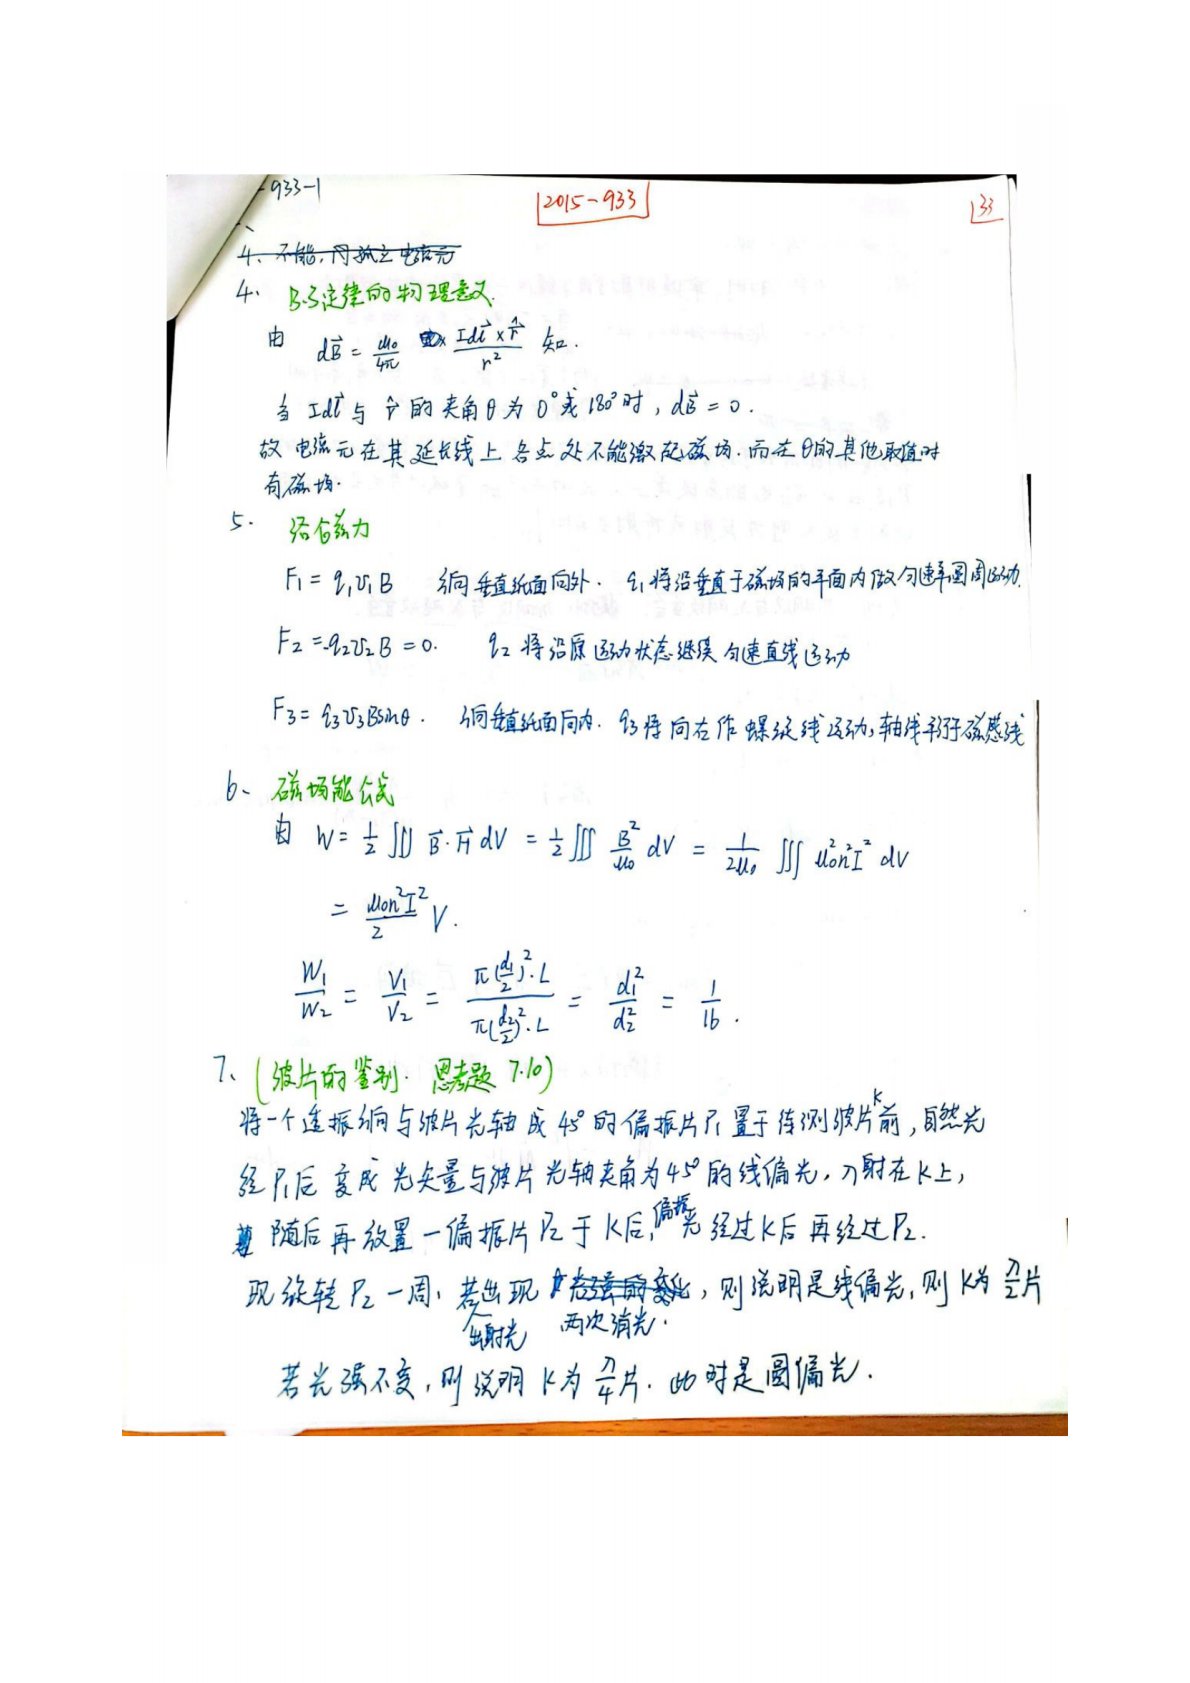 933-1
2015-933
33
4、不能,因孤立电流元
4、B-S定律的物理意义.
由 dB⃗ = μ₀/4π × Idl⃗×r̂/r² 知.
当 Idl⃗ 与 r̂ 的夹角θ为0°或180°时, dB⃗ = 0.
故电流元在其延长线上各点处不能激起磁场.而在θ的其他取值时
有磁场.
5. 洛仑兹力
F₁ = q₁v₁B 方向垂直纸面向外. q₁将沿垂直于磁场的平面内做匀速率圆周运动.
F₂ = q₂v₂B = 0. q₂将沿原运动状态继续匀速直线运动
F₃ = q₃v₃Bsinθ. 方向垂直纸面向内. q₃将向右作螺旋线运动,轴线平行于磁感线
6、磁场能公式
由 W = 1/2 ∭ B⃗·H⃗ dV = 1/2 ∭ B²/μ₀ dV = 1/2μ₀ ∭ μ₀²n²I² dV
= μ₀n²I²/2 V.
W₁/W₂ = V₁/V₂ = π(d₁/2)²·L / π(d₂/2)²·L = d₁²/d₂² = 1/16.
7、(波片的鉴别. 思考题 7.10)
将一个透振方向与波片光轴成45°的偏振片P₁置于待测波片K前,自然光
经P₁后变成光矢量与波片光轴夹角为45°的线偏光,入射在K上,
随后再放置一偏振片P₂于K后,偏振光经过K后再经过P₂.
现旋转P₂一周,若出射光出现光强的变化两次消光.,则说明是线偏光,则K为λ/2片
若光强不变,则说明K为λ/4片.此时是圆偏光.